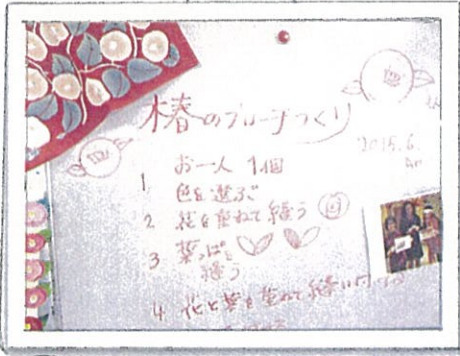 椿のブローチづくり
2015.6.
お一人 1個
1 色を選ぶ
2 花を重ねて縫う
3 葉っぱを
縫う
4 花と葉を重ねて縫い付ける